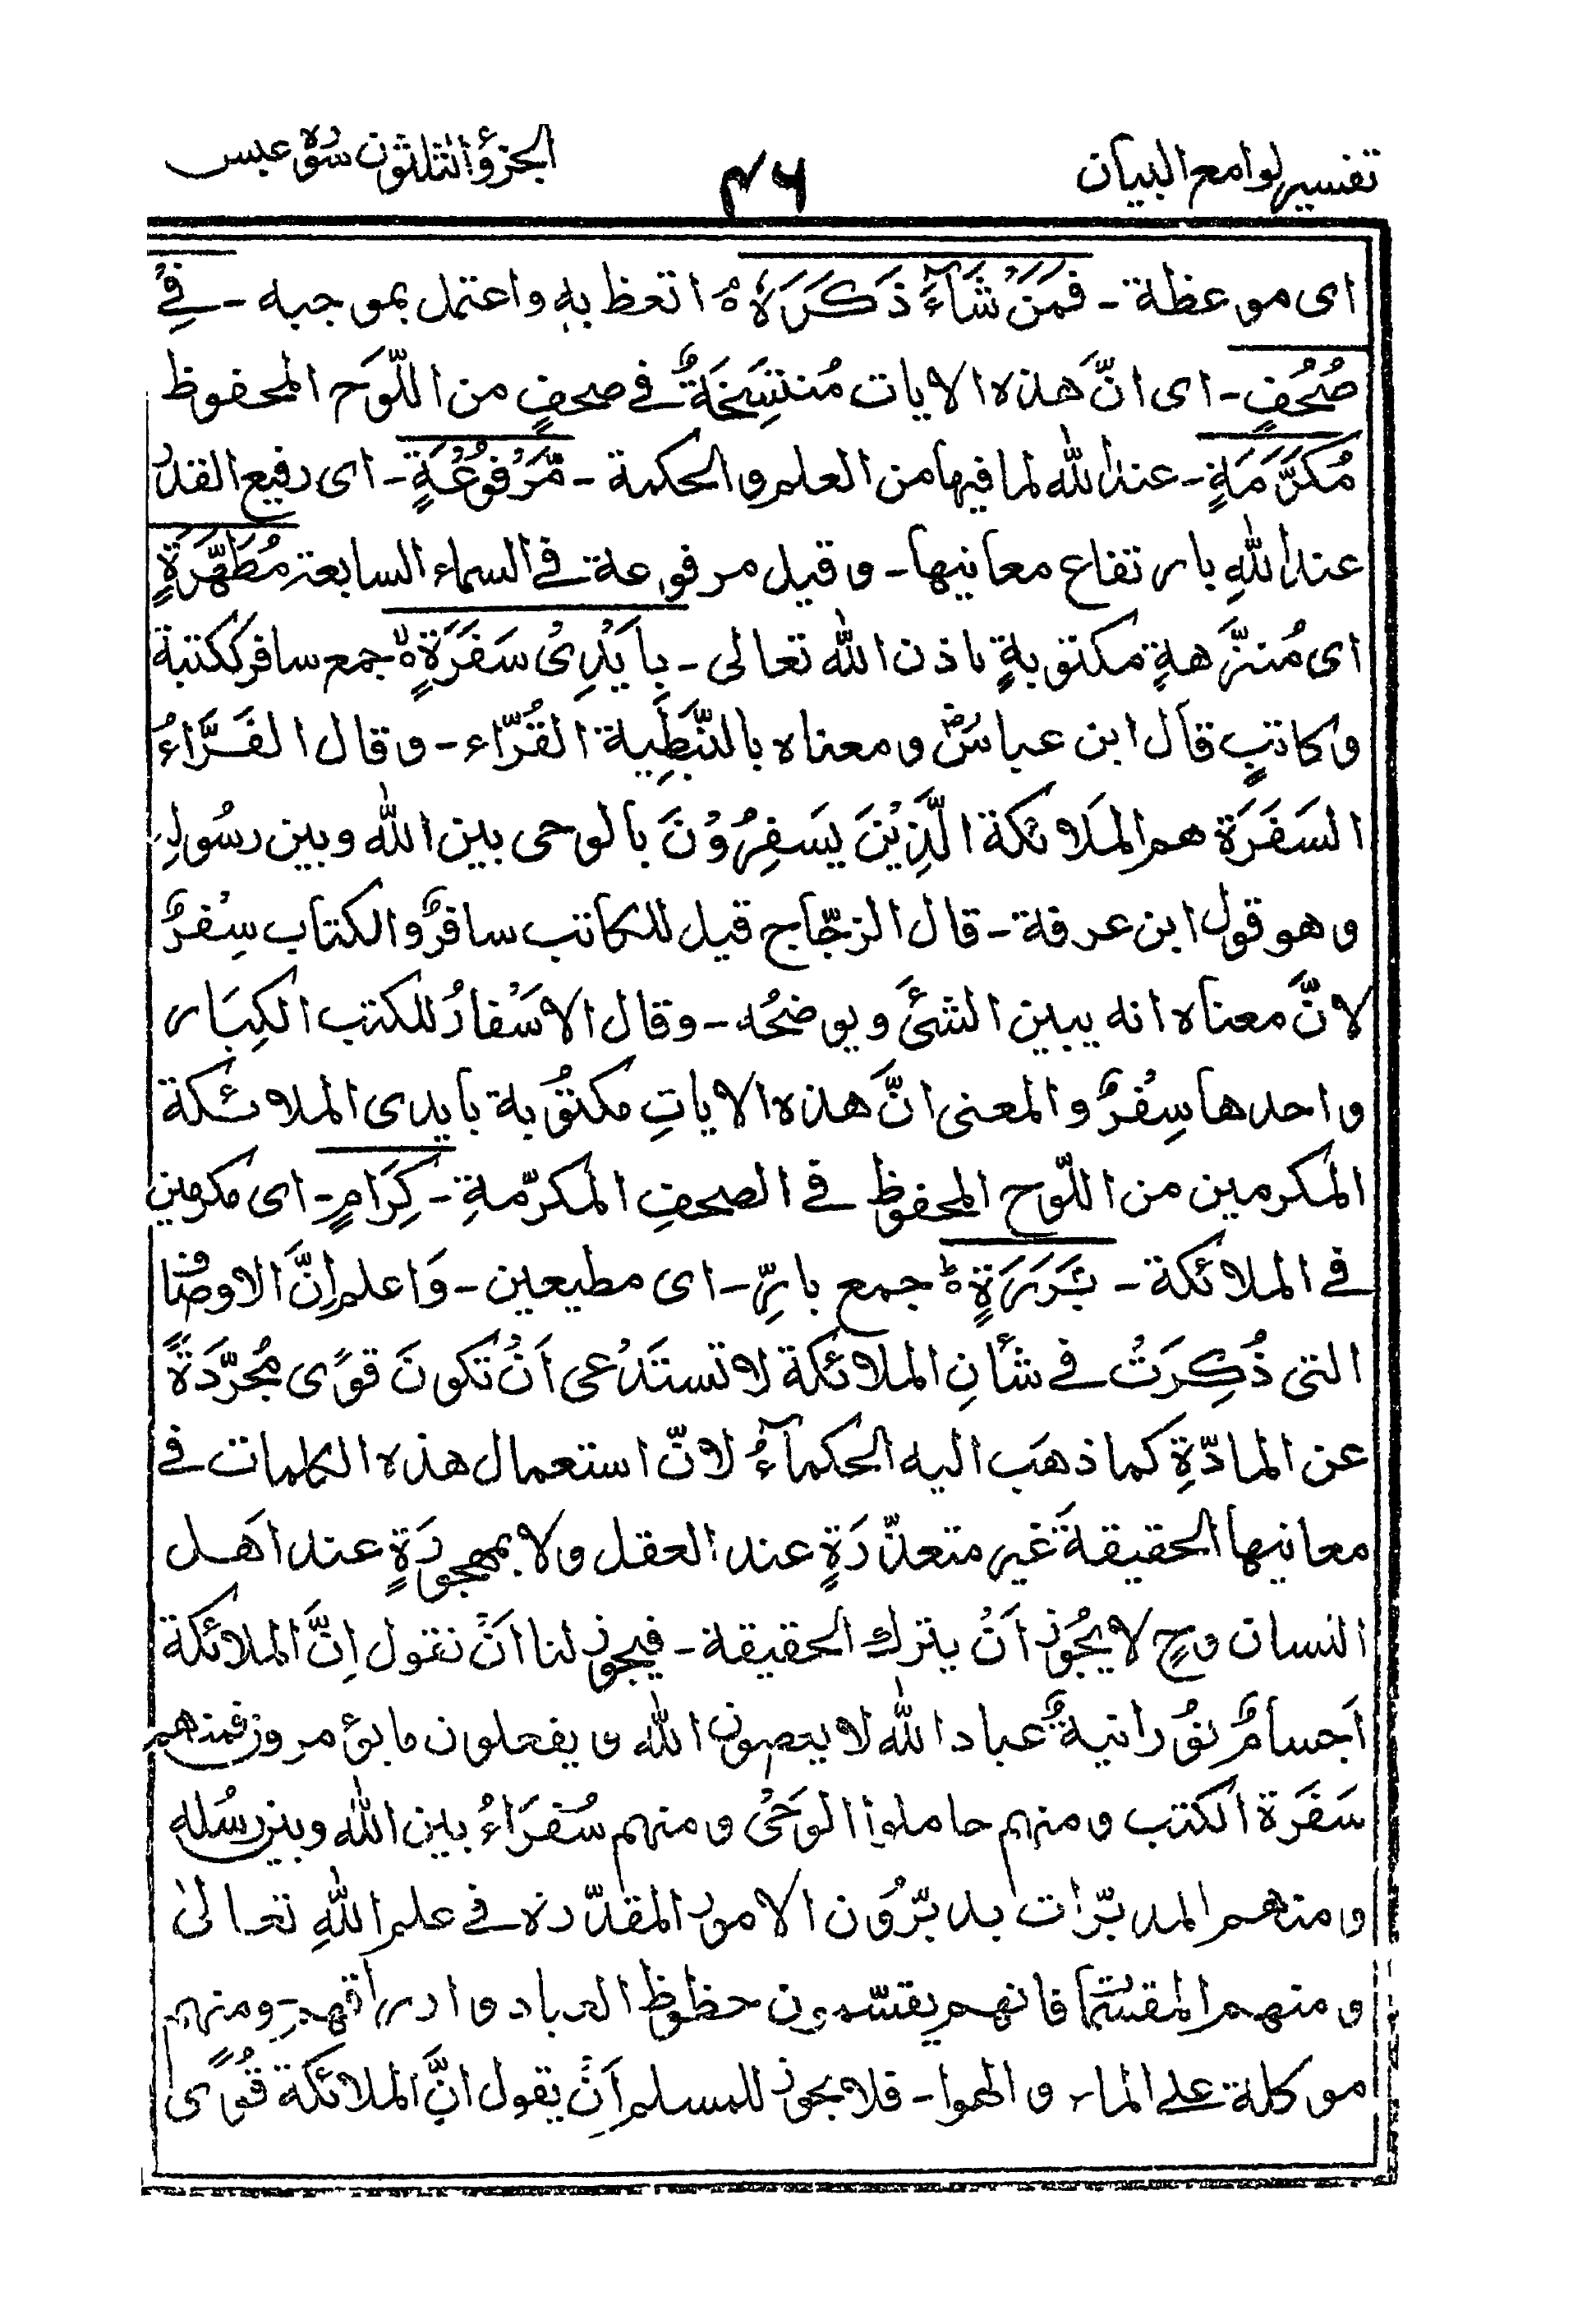 تفسير لوامع البيان ۴۶ الجزؤ الثلثون سورة عبس
اى موعظة - فَمَنْ شَآءَ ذَكَرَهٗ ہ اتعظ بہٖ واعتمل بموجبه - فِيْ
صُحُفٍ - اى انَّ هذه الايات مُنتسِخَةٌ فے صحفٍ من اللّوَح المحفوظ
مُكَرَّمَةٍ - عند الله لما فيها من العلم والحكمة - مَّرْفُوْعَةٍ - اى رفيع القدر
عند اللهِ بارتفاع معانيها - وقيل مرفوعة فے السماء السابعة مُطَهَّرَةٍ
اى مُنزَّهةٍ مكتوبةٍ باذن الله تعالى - بِاَيْدِىْ سَفَرَةٍ ہ جمع سافر ككتبة
وكاتبٍ قال ابن عباسؓ ومعناه بالنَّبَطِية القُرّاء - وقال الفَرَّاءُ
السَفَرَة هم الملَائكة الَّذِيْنَ يَسفِرُوْنَ بالوحى بين الله وبين رسُولِه
وهو قول ابن عرفة - قال الزجّاج قيل للكاتب سافرٌ والكتاب سِفْرٌ
لانَّ معناه انه يبين الشئَ ويوضحُه - وقال الاسْفارُ للكتب الكِبَار
واحدها سِفْرٌ والمعنى انَّ هذه الاياتِ مكتوُبة بايدى الملائكة
المكرمين من اللّوح المحفوظ فے الصحفِ المكرّمةِ - كِرَامٍ - اى مكرمين
فے الملائكة - بَرَرَةٍ ہ جمع بارٍّ - اى مطيعين - وَاعلم اِنَّ الاوصاف
التى ذُكِرَتْ فے شأنِ الملائكة لا تستَدْعى اَنْ تكونَ قوًى مُجرَّدَةً
عن المادّةِ كما ذهَب اليه الحكمآءُ لانّ استعمال هذه الكلمات فے
معانيها الحقيقة غير متعذّرَةٍ عند العقل ولا بمهجورَةٍ عند اهَل
النسان وحٍ لا يجُوز اَنْ يترك الحقيقة - فيجوز لنا انَْ نقول اِنَّ الملائكة
اَجسامٌ نوُرانيةٌ عباد الله لا يعصون الله و يفعلون ما يؤمرون فمنهم
سَفَرَة الكتب ومنهم حاملوا الوَحْى ومنهم سُفَرَاءُ بين الله وبين رسُله
ومنهم المدبّرات يدبّرُون الامور المقدّرة فے علم اللهِ تعالىٰ
ومنهم المقسّمات فانهم يقسّمون حظوظ العباد و ادراقهم - ومنهم
موكلة على الماء والهوا - فلا يجوز للمسلم اَنْ يقول انَّ الملائكة قُوًى